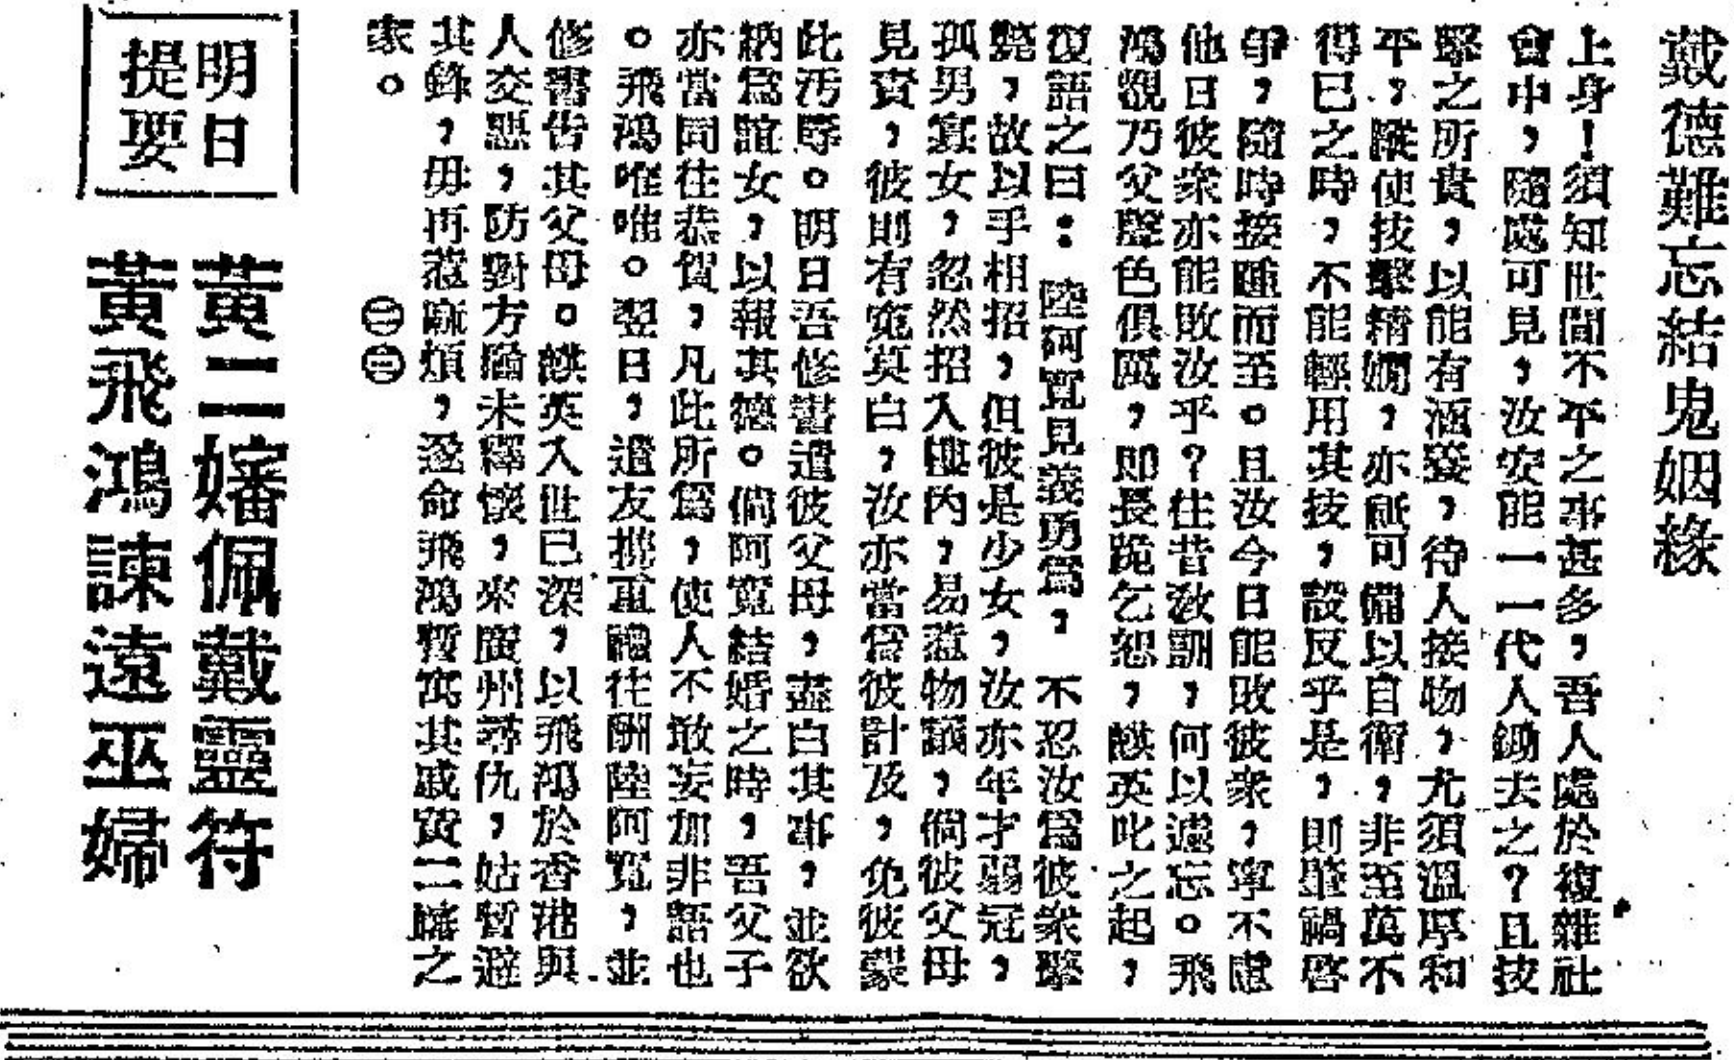 戴德難忘結鬼姻緣
上身!須知世間不平之事甚多,吾人處於複雜社
會中,隨處可見,汝安能一一代人鋤去之?且技
擊之所貴,以能有涵養,待人接物,尤須溫厚和
平,縱使技擊精嫻,亦祇可備以自衛,非至萬不
得已之時,不能輕用其技,設反乎是,則肇禍啓
爭,隨時接踵而至。且汝今日能敗彼衆,寧不慮
他日彼衆亦能敗汝乎?往昔敎訓,何以遽忘。飛
鴻覩乃父聲色俱厲,卽長跪乞恕,饃英叱之起,
復語之曰:陸阿寬見義勇爲,不忍汝爲彼衆擊
斃,故以手相招,但彼是少女,汝亦年才弱冠,
孤男寡女,忽然招入樓內,易惹物議,倘彼父母
見責,彼則有寃莫白,汝亦當爲彼計及,免彼蒙
此汚辱。明日吾修書遣彼父母,盡白其事,並欲
納爲誼女,以報其德。倘阿寬結婚之時,吾父子
亦當同往恭賀,凡此所爲,使人不敢妄加非語也
。飛鴻唯唯。翌日,遣友携重禮往酬陸阿寬,並
修書告其父母。饃英入世已深,以飛鴻於香港與
人交惡,防對方猶未釋懷,來廣州尋仇,姑暫避
其鋒,毋再惹麻煩,遂命飛鴻暫寓其戚黃二嬸之
家。 ㊁㊂
明日
提要
黃二嬸佩戴靈符
黃飛鴻諫遠巫婦